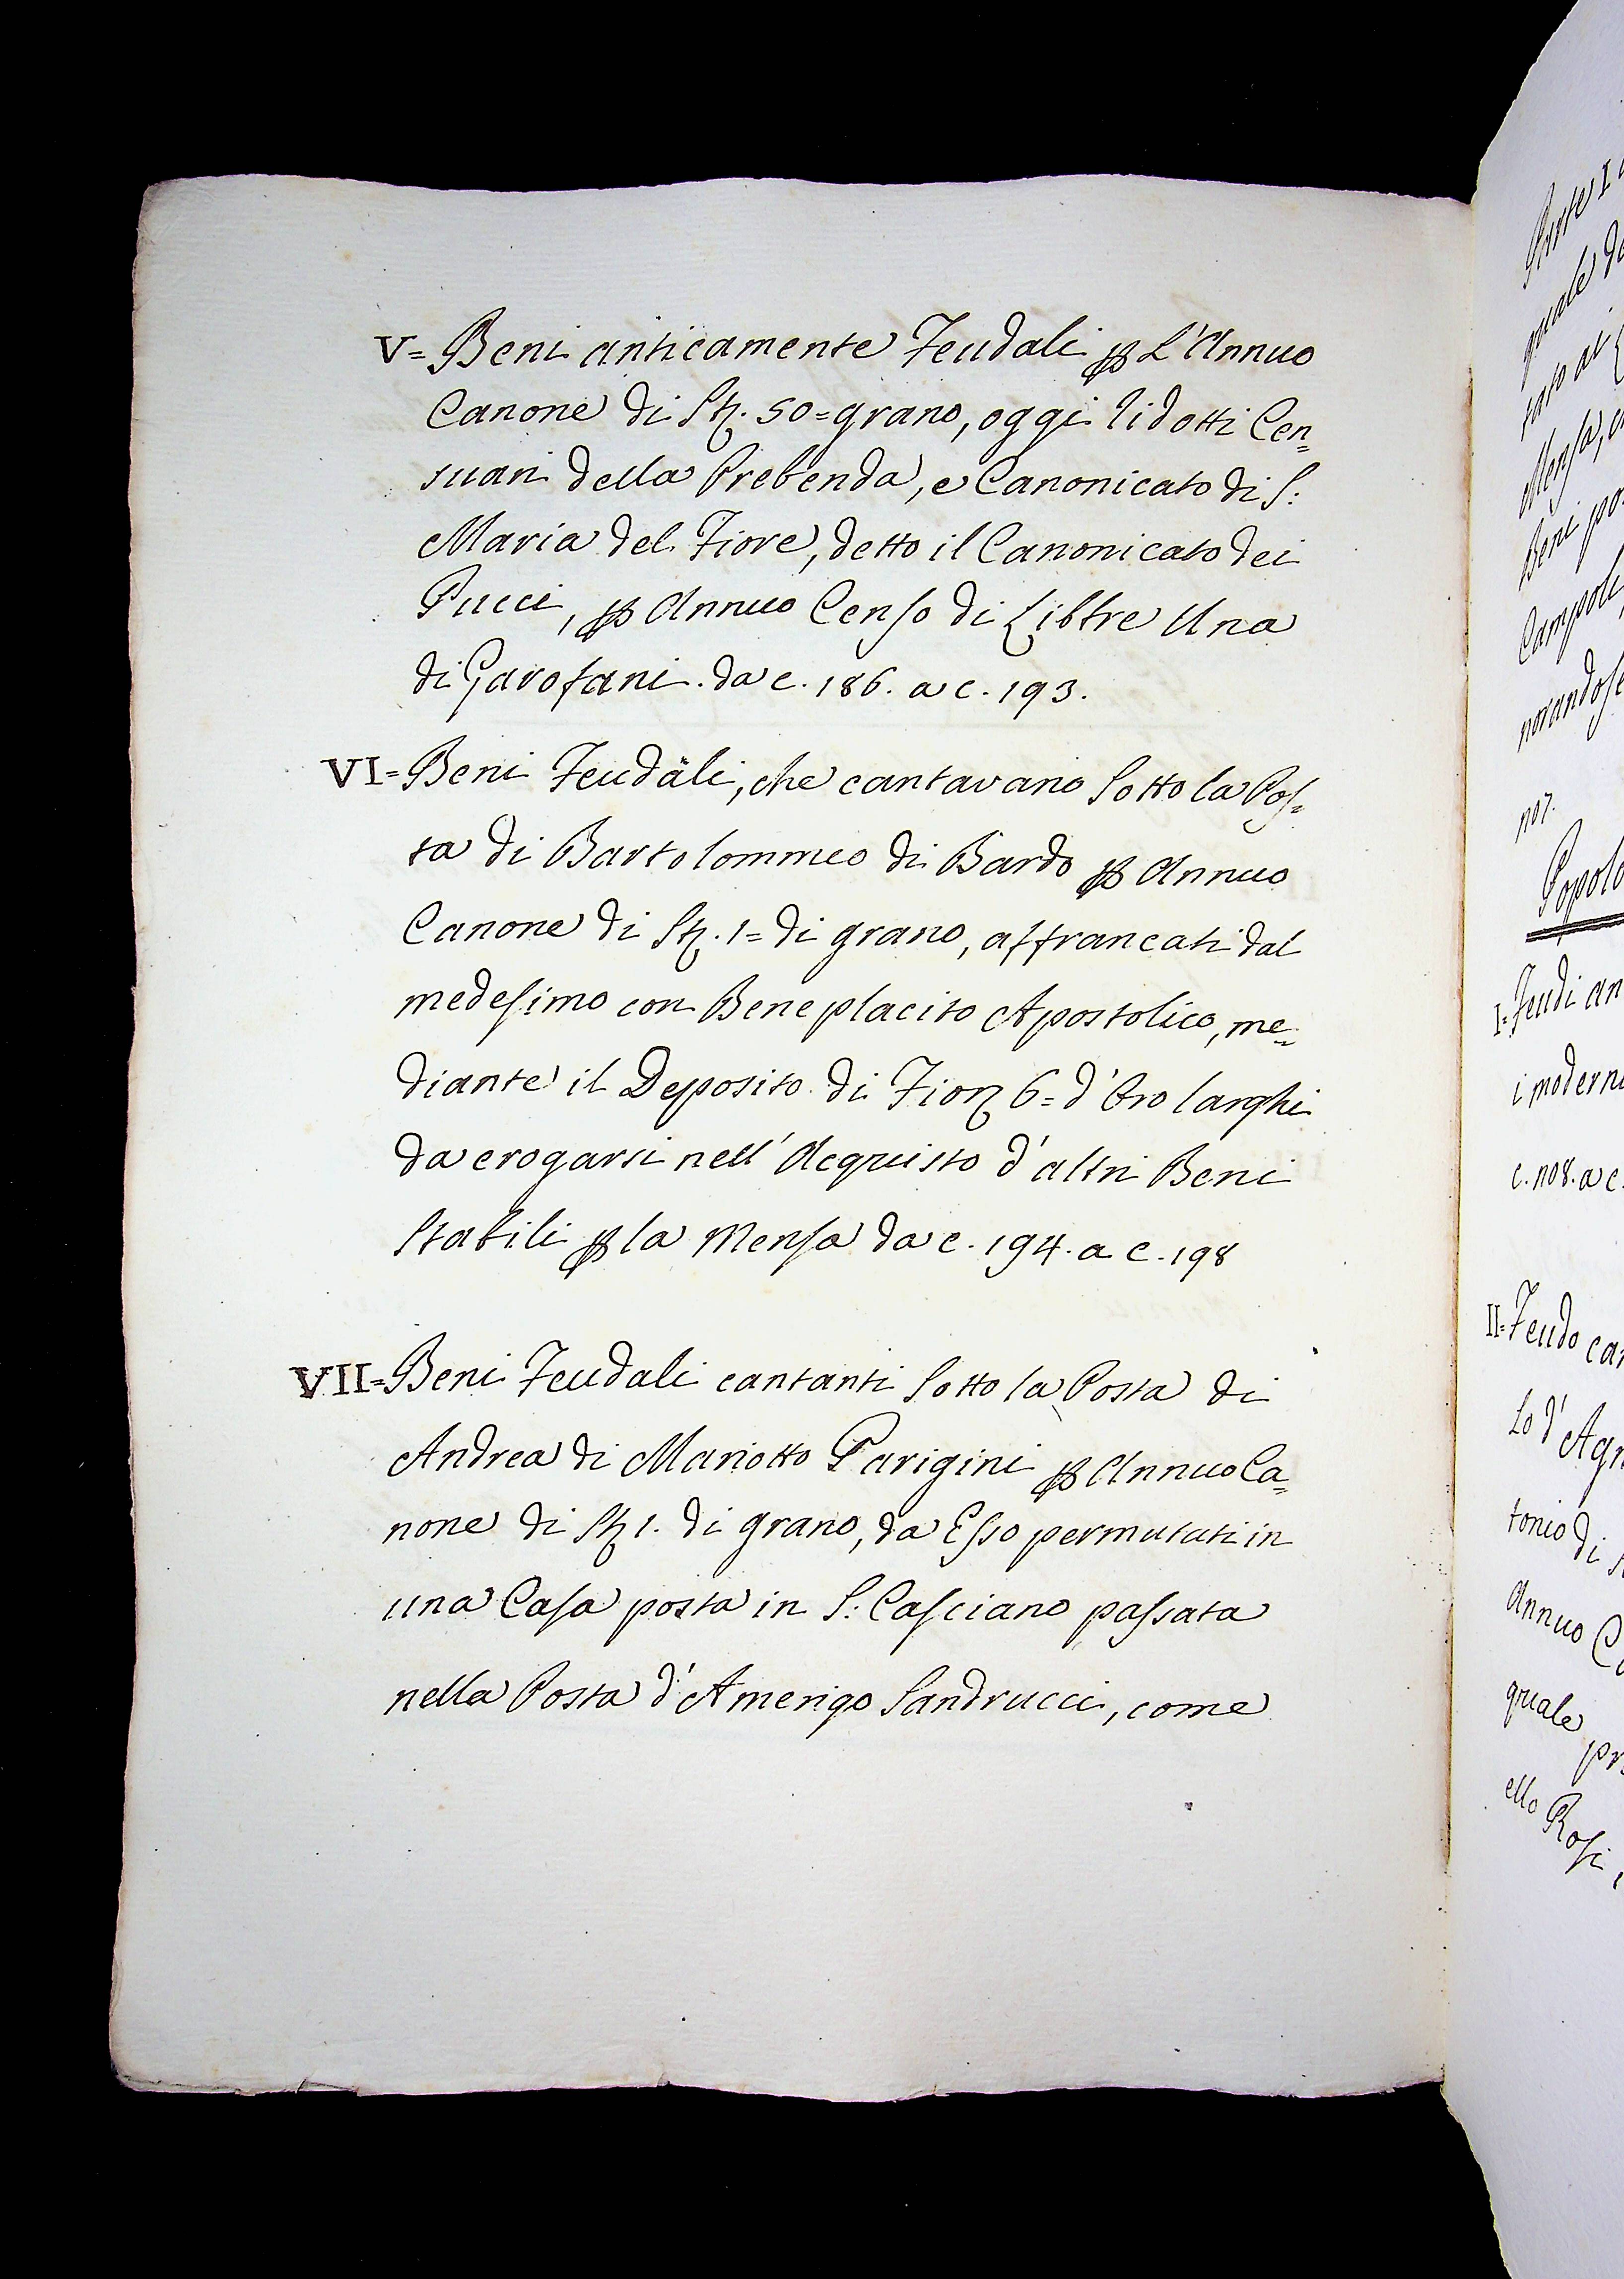 V= Beni anticamente Feudali p L'Annuo
Canone di St. 50= grano, oggi ridotti Cen=
suari della Prebenda, e Canonicato di S:
Maria del Fiore, detto il Canonicato dei
Pucci, p Annuo Censo di Libbre Una
di Garofani. da c. 186. a c. 193.
VI= Beni Feudali, che cantavano Sotto la Pos=
ta di Bartolommeo di Bardo p Annuo
Canone di St. 1= di grano, affrancati dal
medesimo con Beneplacito Apostolico, me=
diante il Deposito di Fior 6= d'Oro larghi
da erogarsi nell'Acquisto d'altri Beni
Stabili p la Mensa da c. 194. a c. 198
VII= Beni Feudali cantanti Sotto la Posta di
Andrea di Mariotto Parigini p Annuo Ca=
none di St 1. di grano, da Esso permutati in
una Casa posta in S: Casciano passata
nella Posta d'Amerigo Sandrucci, come
Parte I
quale
Mensa,
Beni
Campoli
norandose
Popolo
I= Feudi an
i moderni
c. 208. a c.
II= Feudo can
Lo d'Agn
tonio di
Annuo Ca
quale
ello Rosi,